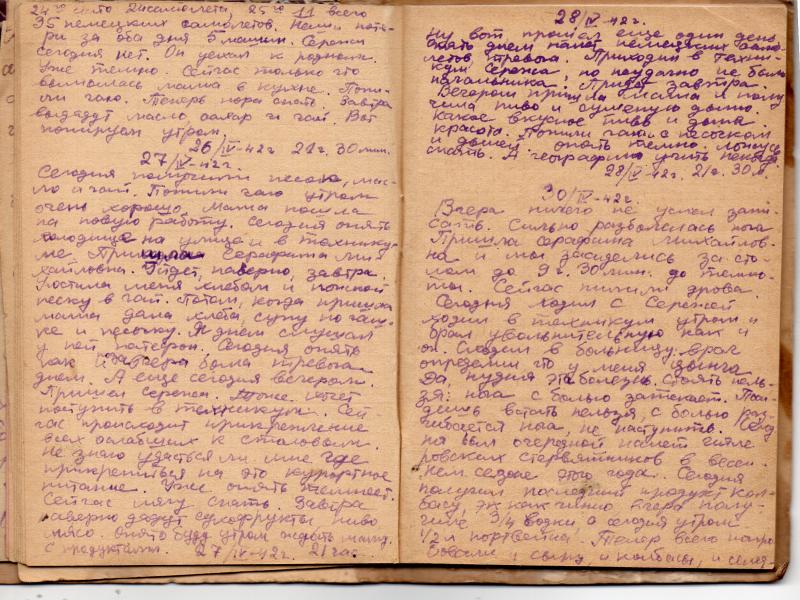 24го сбито 24 самолета, 25го 11 всего
35 немецких самолетов. Наши поте-
ри за оба дня 5 машин. Сережи
сегодня нет. Он уехал к родным.
Уже темно. Сейчас только что
вымылась мама в кухне. Попи-
ли чаю. Теперь пора спать. Завтра
выдадут масло, сахар и чай. Вот
попируем утром.
26/IV-42г. 21г. 30мин.
27/IV-42г.
Сегодня получили песок, мас-
ло и чай. Попили чаю утром
очень хорошо. Мама пошла
на новую работу. Сегодня опять
холодище на улице и в технику-
ме. Пришла Серафима Ми-
хайловна. Уйдет, наверно, завтра.
Угостила меня хлебом и
песку в чай. Потом, когда пришла
мама дала хлеба, супу по
ке и песочку. Я днем слушал
у ней патефон. Сегодня опять
как и вчера была тревога
днем. А еще сегодня вечером.
Пришел Сережа. Тоже хочет
поступить в техникум. Сей-
час происходит прикрепление
всех слабых к столовым.
Не знаю удасться ли мне где
прикрепиться на это курортное
питание. Уже опять темнеет.
Сейчас лягу спать. Завтра
наверно дадут сухофрукты пиво
мясо. Опять буду утром ждать маму
с продуктами. 27/IV-42г. 21час.
28/IV-42г.
Ну вот прошел еще один день.
Опять днем налет немецких само-
летов, тревога. Приходил в техни-
кум Сережа, но неудачно не было
начальника. Придет завтра.
Вечером пришла мама. Я полу-
чила пиво и сушеную дыню.
Какое вкусное пиво и дыня
красота. Попили чаю с песочком
и дыней. опять темно. ложусь
спать. А географию учить некогда.
28/IV-42г. 21г. 30м.
30/IV-42г.
Вчера ничего не успел запи-
сать. Сильно разболелась нога
Пришла Серафима Михайлов-
на и мы засиделись за сто-
лом до 9г. 30мин. до темно-
ты. Сейчас пилили дрова.
Сегодня ходил с Сережей
ходил в техникум утром и
брал увольнительную как и
он. Сходил в больницу: врач
определил что у меня цынга
Да, нудная эта болезнь. Стоять нель-
зя: нога с болью затекает. Поси-
дишь встать нельзя, с болью раз-
гибается нога, не наступить. Сегод
ня был очередной налет гитле
ровских стервятников в весен-
нем сезоне этого года. Сегодня
получили последний продукт кол-
басу, эх как чинно вчера полу-
чили 3/4 водки а сегодня утром
1/2л портвейна. Теперь всего напро
бовали и сыру, и колбасы, и селед-